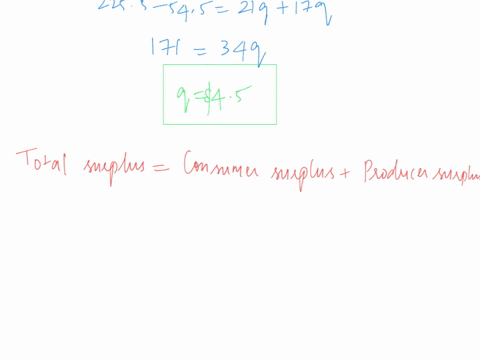 225.5 - 54.5 = 21q + 17q
171 = 34q
q = $4.5
Total surplus = Consumer surplus + Producer surplus